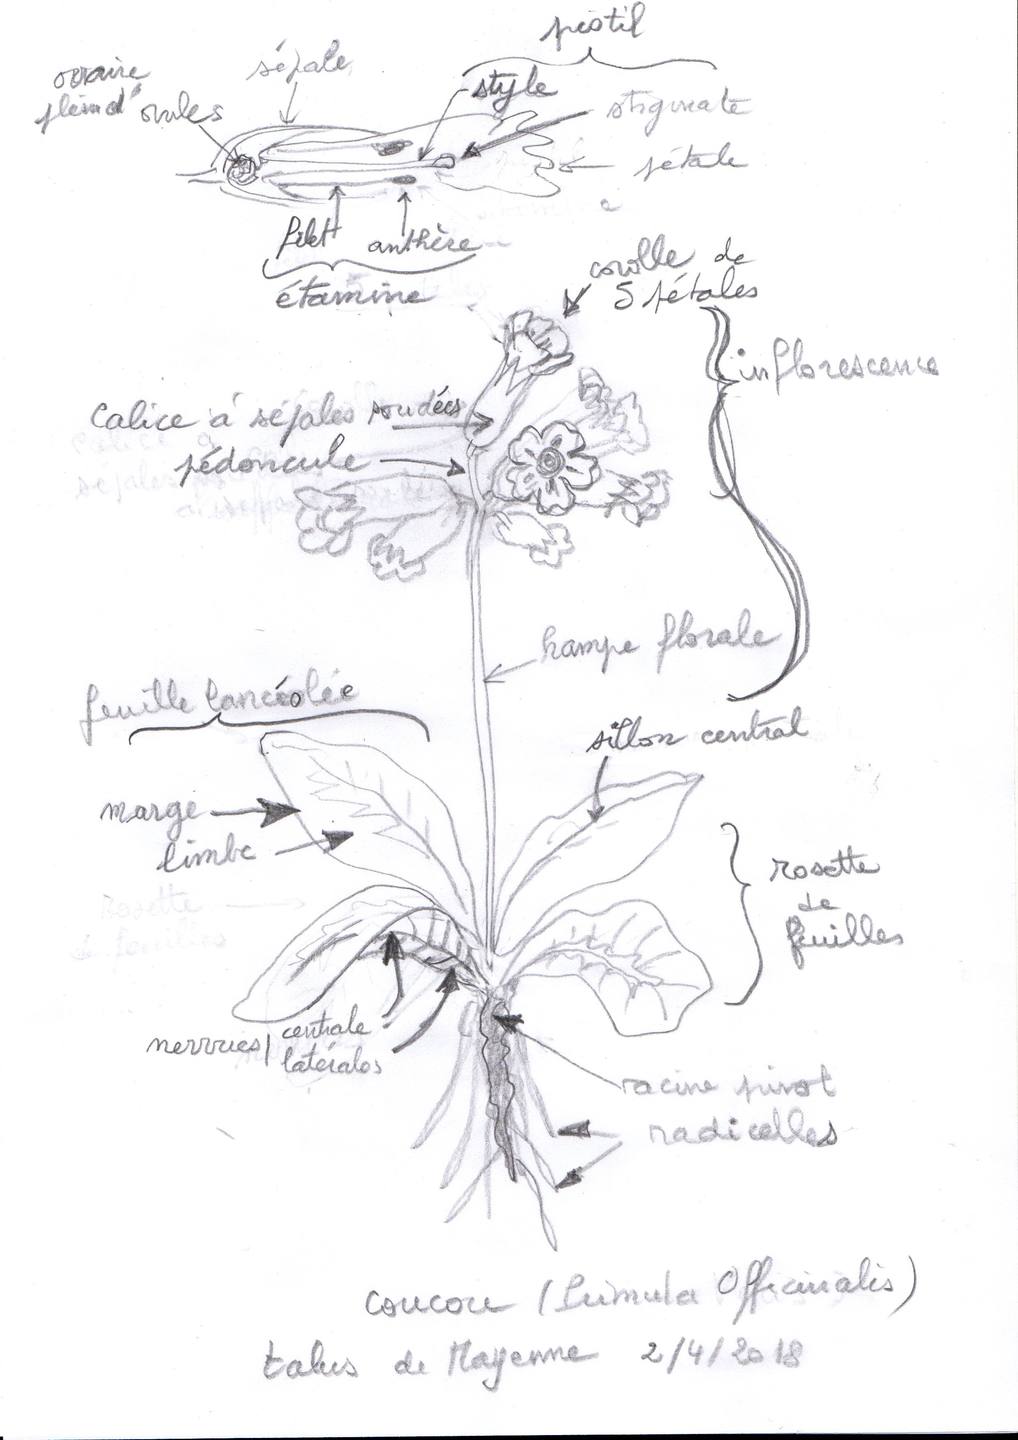 pistil
sépale
ovaire
plein d'ovules
style
stigmate
pétale
filet
anthère
étamine
corolle de
5 pétales
inflorescence
Calice à sépales soudées
pédoncule
hampe florale
feuille lancéolée
sillon central
marge
limbe
rosette
de
feuilles
Rosette
de feuilles
nervures centrale
latérales
racine pivot
radicelles
coucou (Primula Officinalis)
talus de Mayenne 2/4/2018